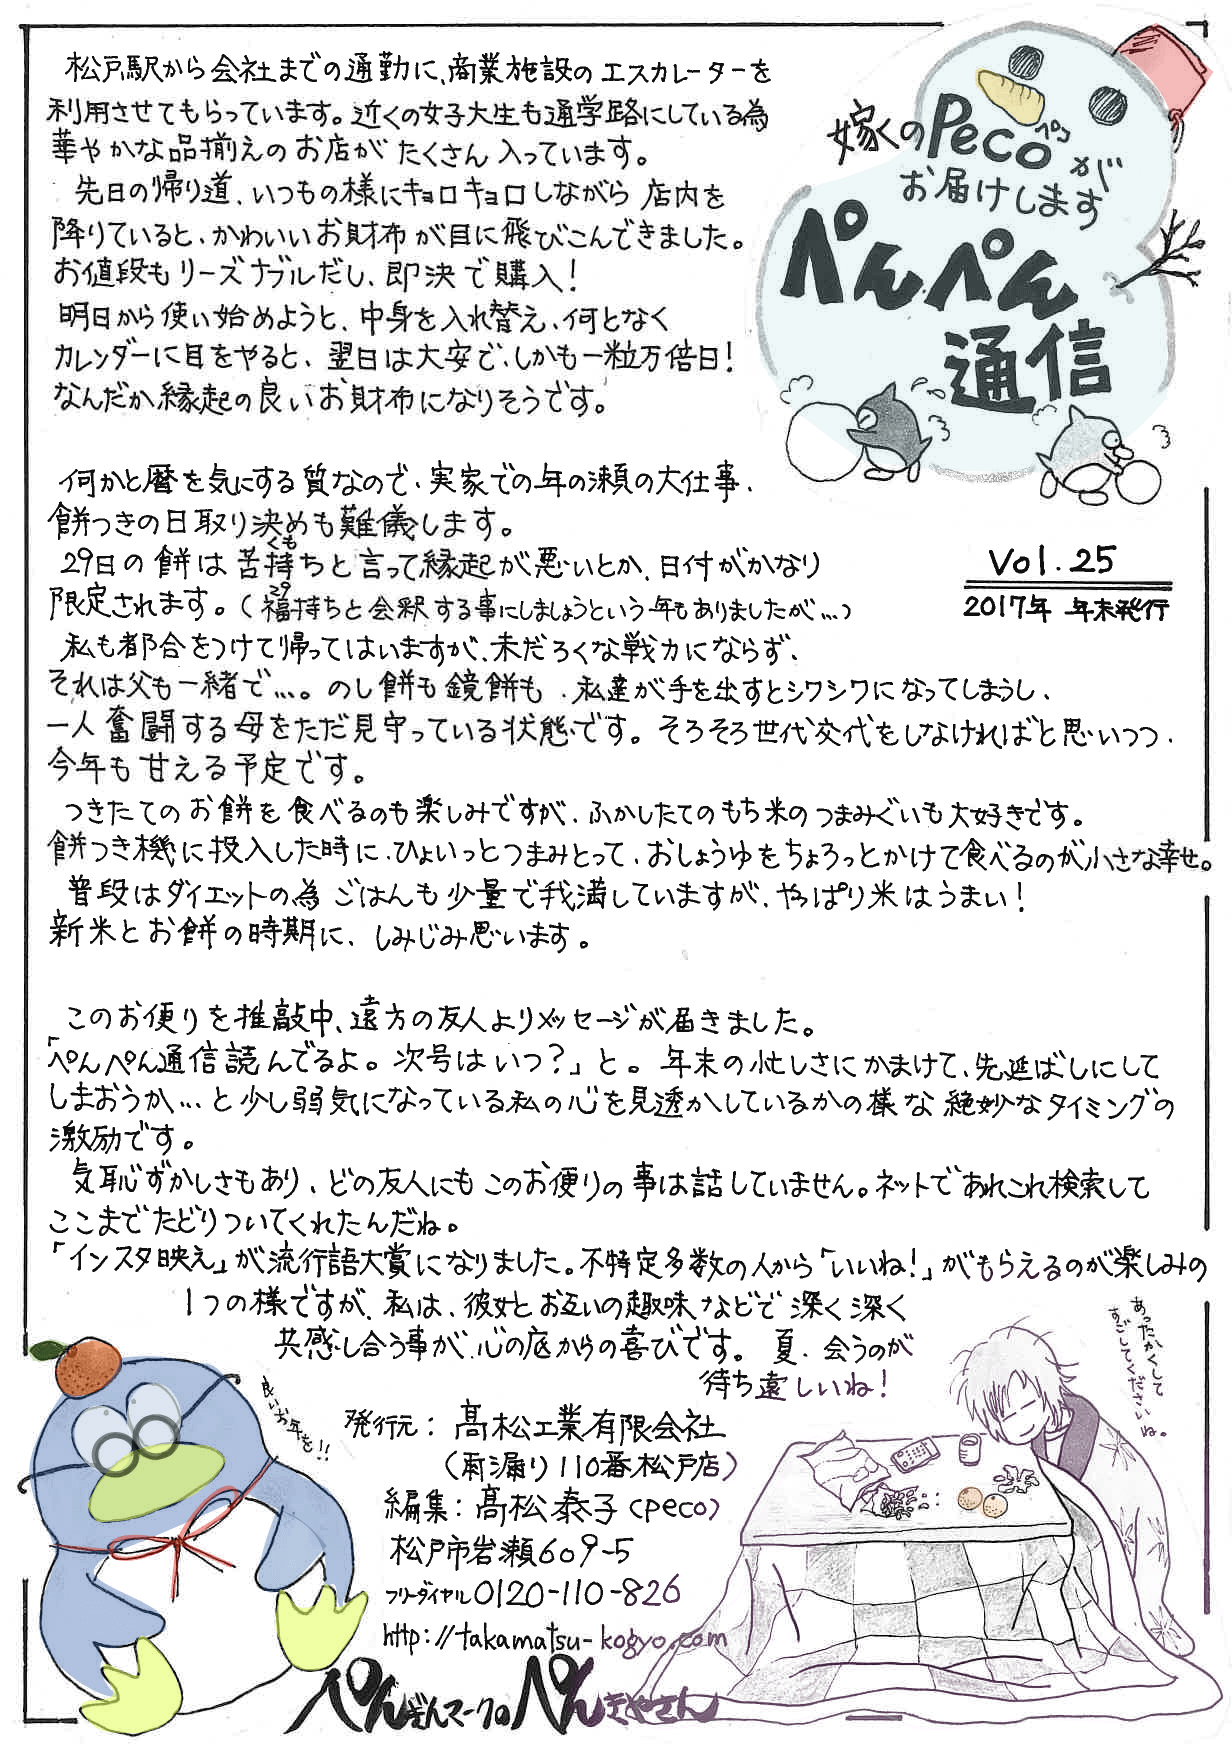 嫁くのPecoが
ペコ
お届けします
ぺんぺん
通信
Vol.25
2017年 年末発行
松戸駅から会社までの通勤に、商業施設のエスカレーターを
利用させてもらっています。近くの女子大生も通学路にしている為
華やかな品揃えのお店がたくさん入っています。
先日の帰り道、いつもの様にキョロキョロしながら店内を
降りていると、かわいいお財布が目に飛びこんできました。
お値段もリーズナブルだし、即決で購入!
明日から使い始めようと、中身を入れ替え、何となく
カレンダーに目をやると、翌日は大安で、しかも一粒万倍日!
なんだか縁起の良いお財布になりそうです。
何かと暦を気にする質なので、実家での年の瀬の大仕事、
餅つきの日取り決めも難儀します。
29日の餅は苦持ちと言って縁起が悪いとか、日付がかなり
くも
限定されます。(福持ちと会釈する事にしましょうという年もありましたが…)
29
私も都合をつけて帰ってはいますが、未だろくな戦力にならず、
それは父も一緒で…。のし餅も鏡餅も、私達が手を出すとシワシワになってしまうし、
一人奮闘する母をただ見守っている状態です。そろそろ世代交代をしなければと思いつつ、
今年も甘える予定です。
つきたてのお餅を食べるのも楽しみですが、ふかしたてのもち米のつまみぐいも大好きです。
餅つき機に投入した時に、ひょいっとつまみとって、おしょうゆをちょろっとかけて食べるのが小さな幸せ。
普段はダイエットの為ごはんも少量で我満していますが、やっぱり米はうまい!
新米とお餅の時期に、しみじみ思います。
このお便りを推敲中、遠方の友人よりメッセージが届きました。
「ぺんぺん通信読んでるよ。次号はいつ?」と。年末の忙しさにかまけて、先延ばしにして
しまおうか…と少し弱気になっている私の心を見透かしているかの様な絶妙なタイミングの
激励です。
気恥ずかしさもあり、どの友人にもこのお便りの事は話していません。ネットであれこれ検索して
ここまでたどりついてくれたんだね。
「インスタ映え」が流行語大賞になりました。不特定多数の人から「いいね!」がもらえるのが楽しみの
1つの様ですが、私は、彼女とお互いの趣味などで深く深く
共感し合う事が、心の底からの喜びです。夏、会うのが
待ち遠しいね!
あったかくして
すごしてくださいね。
良いお年を!!
発行元:髙松工業有限会社
(雨漏り110番松戸店)
編集:髙松泰子(peco)
松戸市岩瀬609-5
フリーダイヤル0120-110-826
http://takamatsu-kogyo.com
ぺんぎんマークのぺんきやさん